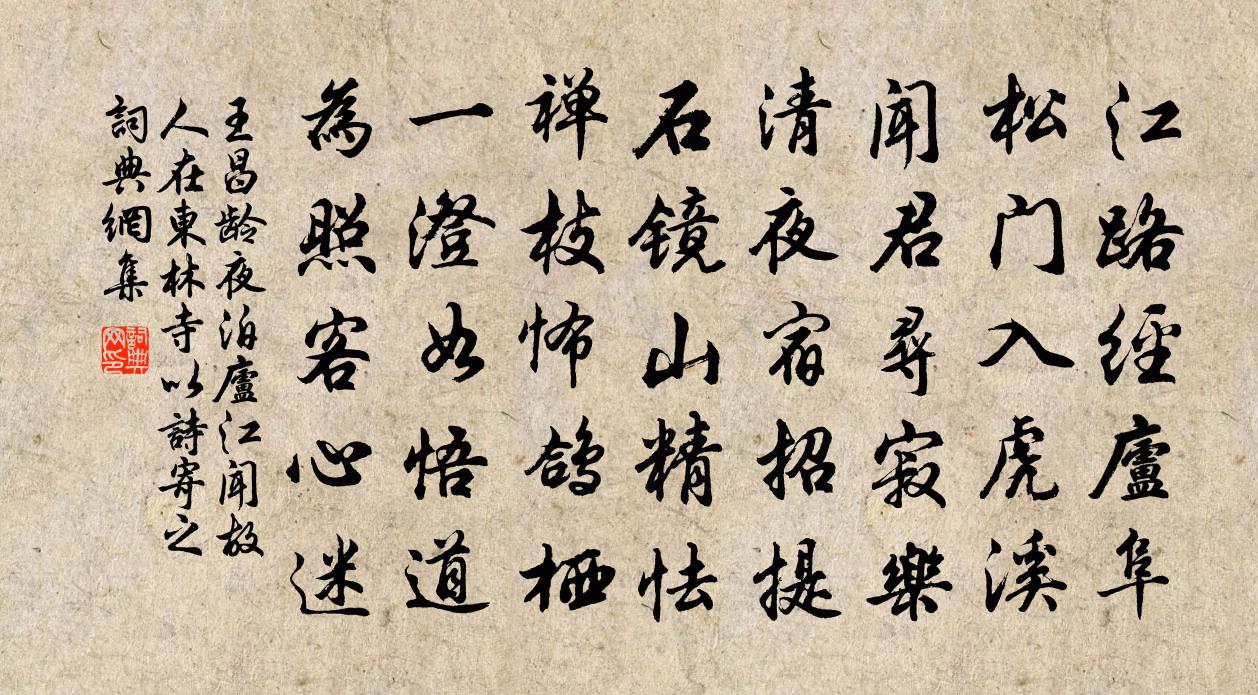 江路經廬阜
松门入虎溪
闻君尋寂樂
清夜宿招提
石镜山精怯
禅枝怖鸽栖
一澄如悟道
為照客心迷
王昌龄夜泊廬江闻故
人在東林寺以詩寄之
詞典網集
詞典
网印